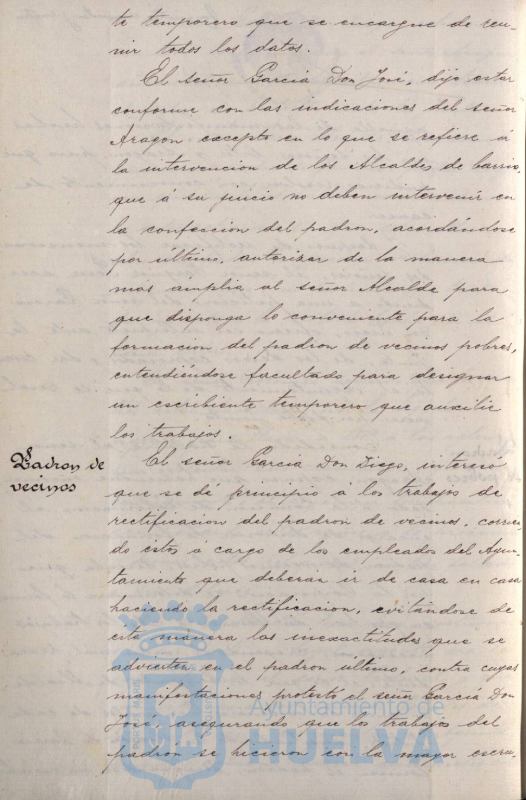 te temporero que se encargue de reu-
nir todos los datos.
El señor García Don José, dijo estar
conforme con las indicaciones del señor
Aragon excepto en lo que se refiere á
la intervencion de los Alcaldes de barrio,
que á su juicio no deben intervenir en
la confeccion del padron, acordándose
por último, autorizar de la manera
mas amplia al señor Alcalde para
que disponga lo conveniente para la
formacion del padron de vecinos pobres,
entendiéndose facultado para designar
un escribiente temporero que auxilie
los trabajos.
Padron de
vecinos
El señor García Don Diego, interesó
que se dé principio á los trabajos de
rectificacion del padron de vecinos, corrien-
do éstos á cargo de los empleados del Ayun-
tamiento que deberán ir de casa en casa
haciendo la rectificacion, evitándose de
esta manera las inexactitudes que se
advierten en el padron último, contra cuyas
manifestaciones protestó el señor García Don
José, asegurando que los trabajos del
padrón se hicieron con la mayor escru-
Ayuntamiento de
HUELVA